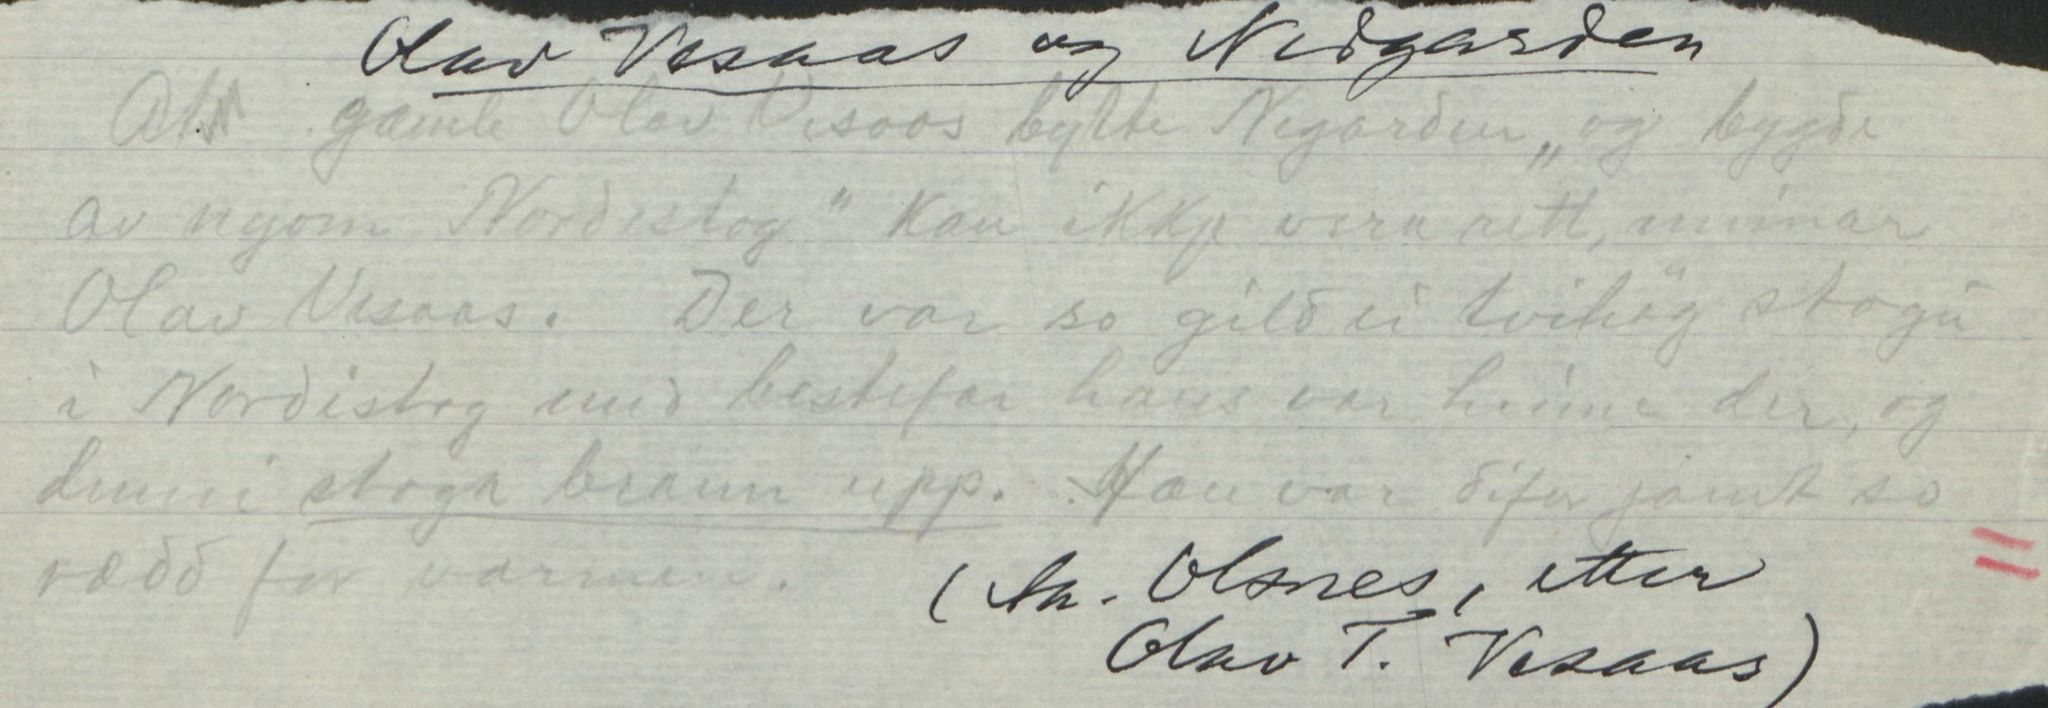 Olav Vesaas og Nedgarden
At gamle Olav Vesaas bytte Negarden „og bygde
av nyom Nordistog" kan ikkje vera rett, minnar
Olav Vesaas. Der var so gild ei tvihøg stogu
i Nordistog med bestefar hans var heime der, og
denni stoga brann upp. Han var difor jamt so
rædd for varmen.
(An. Olsnes, etter
Olav T. Vesaas)